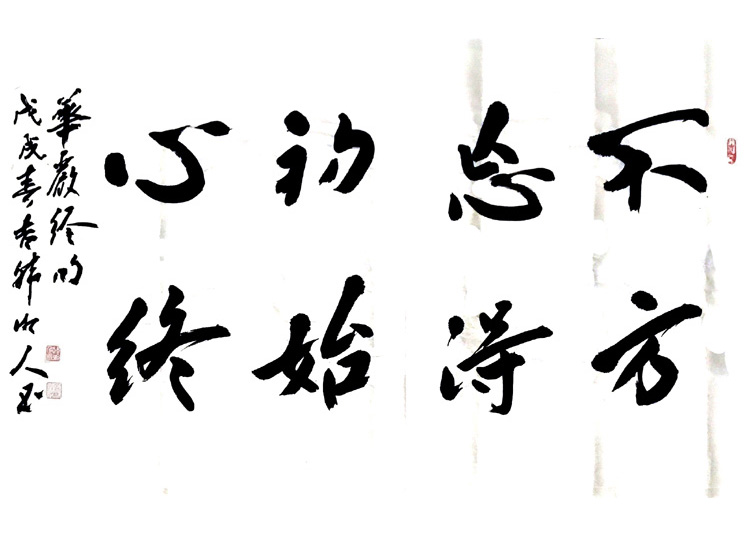 不忘初心
方得始终
華嚴经句
戊戌春山人书